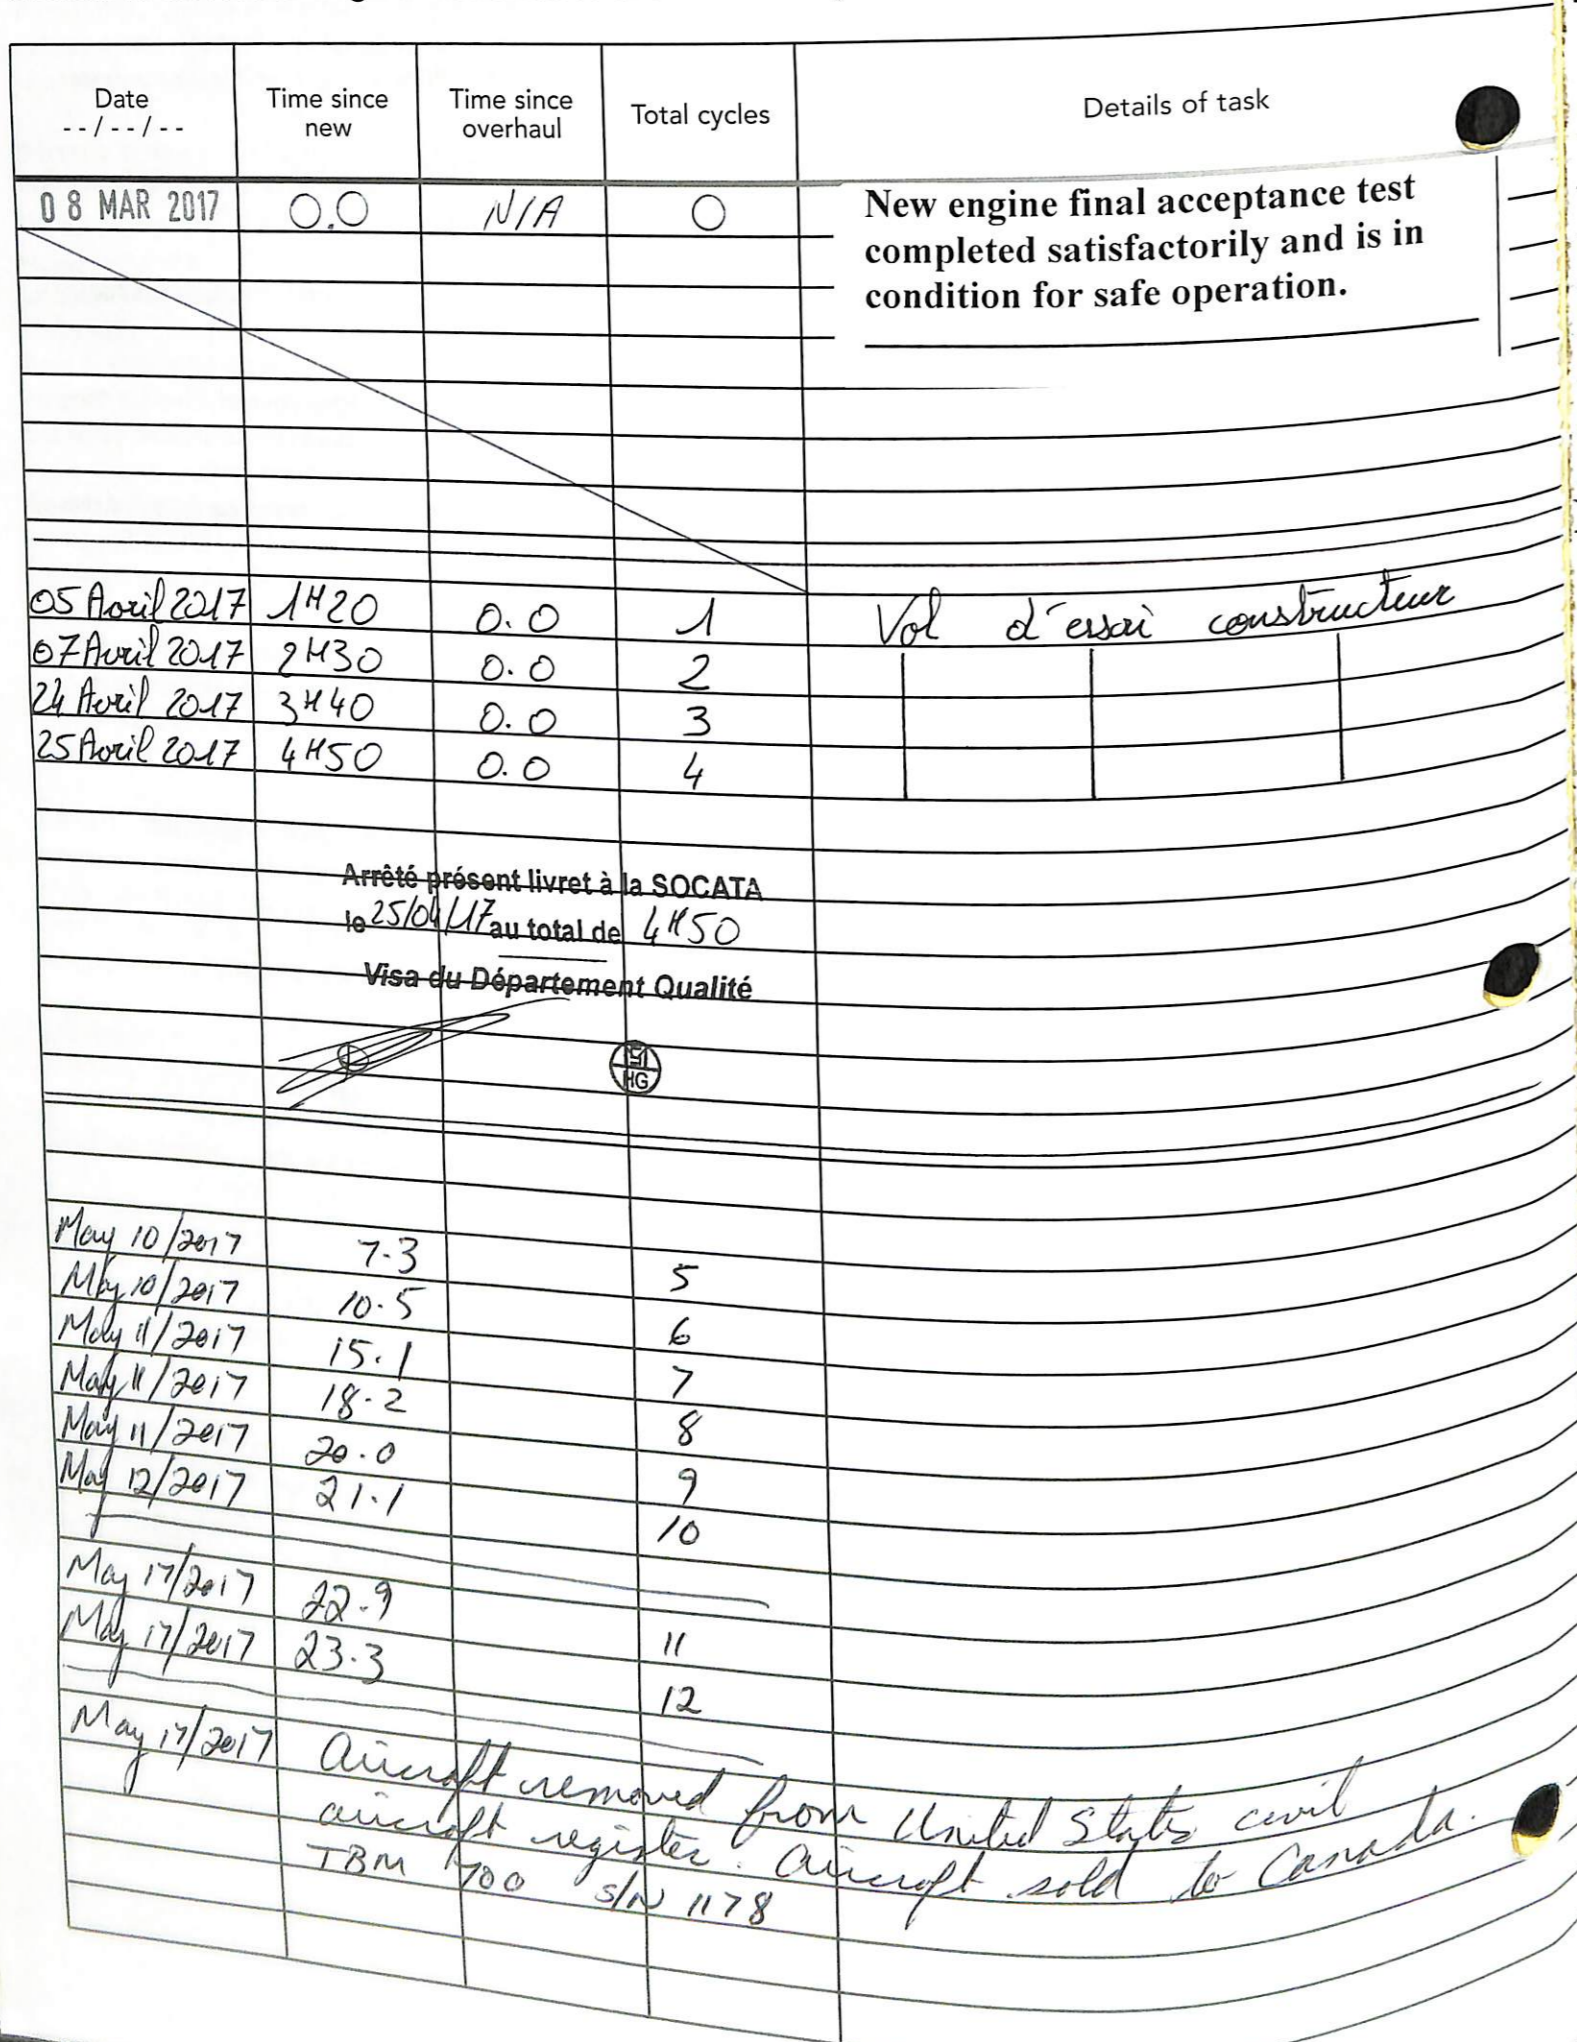 Date Time since new Time since overhaul Total cycles Details of task
--/--/--
08 MAR 2017 0.0 N/A 0 New engine final acceptance test
completed satisfactorily and is in
condition for safe operation.
05 Avril 2017 1H20 0.0 1 Vol d'essai constructeur
07 Avril 2017 2H30 0.0 2
24 Avril 2017 3H40 0.0 3
25 Avril 2017 4H50 0.0 4
Arrêté présent livret à la SOCATA
le 25/04/17 au total de 4H50
Visa du Département Qualité
HG
May 10/2017 7.3 5
May 10/2017 10.5 6
May 11/2017 15.1 7
May 11/2017 18.2 8
May 11/2017 20.0 9
May 12/2017 21.1 10
May 17/2017 22.9 11
May 17/2017 23.3 12
May 17/2017 Aircraft removed from United States civil
aircraft register. Aircraft sold to Canada.
TBM 700 S/N 1178